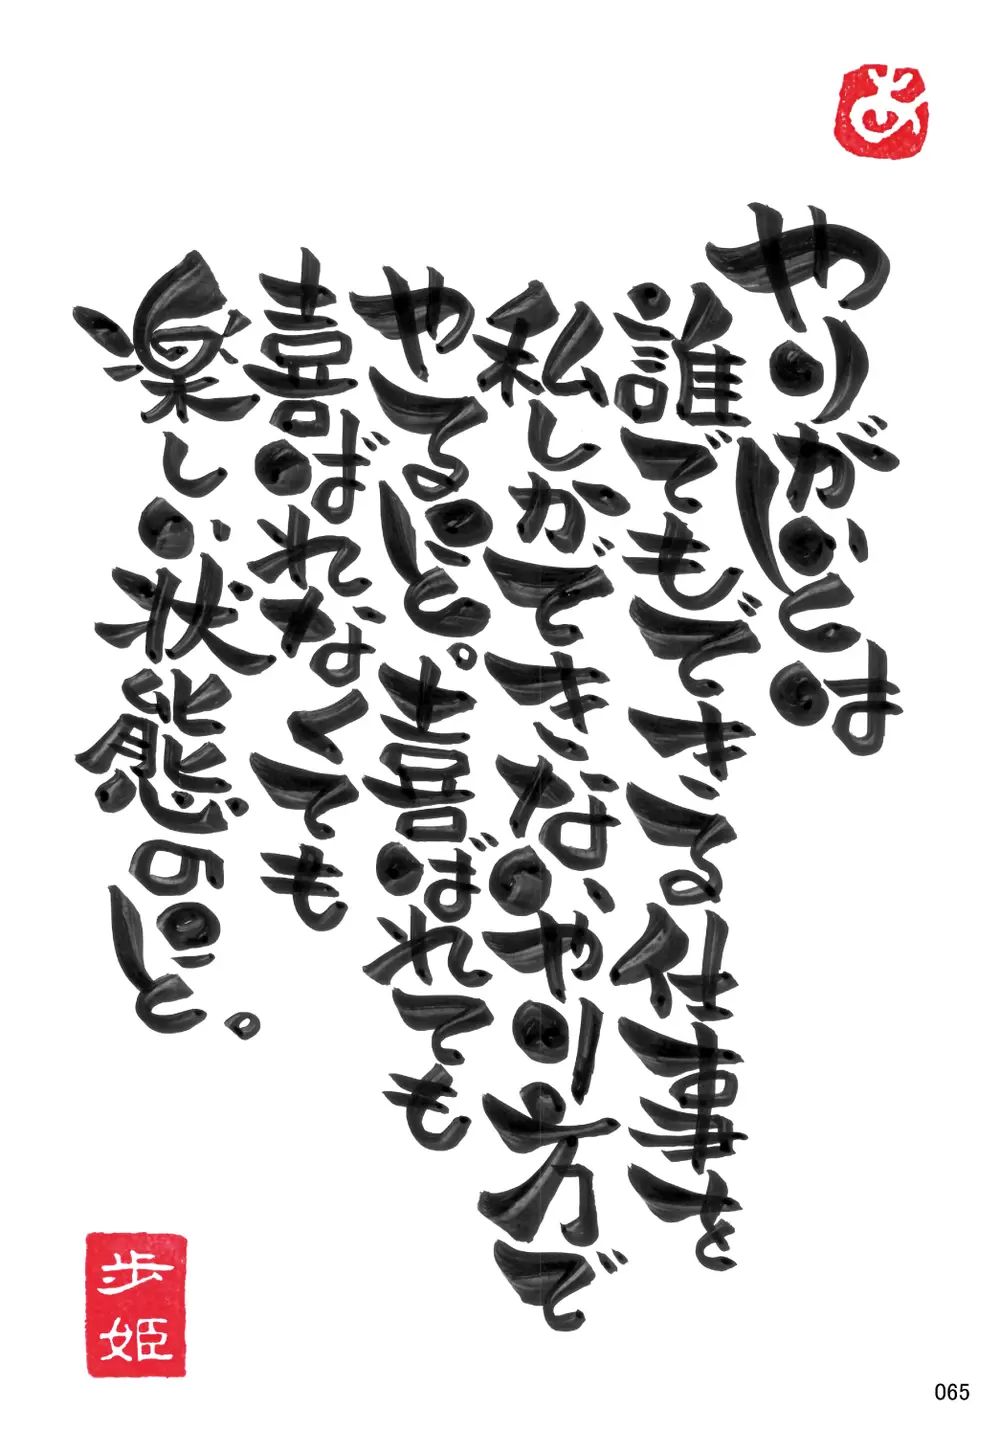 あ
やりがいとは
誰でもできる仕事を
私しかできないやり方で
やてること。喜ばれても
喜ばれなくても
楽しい状態のこと。
歩姫
065